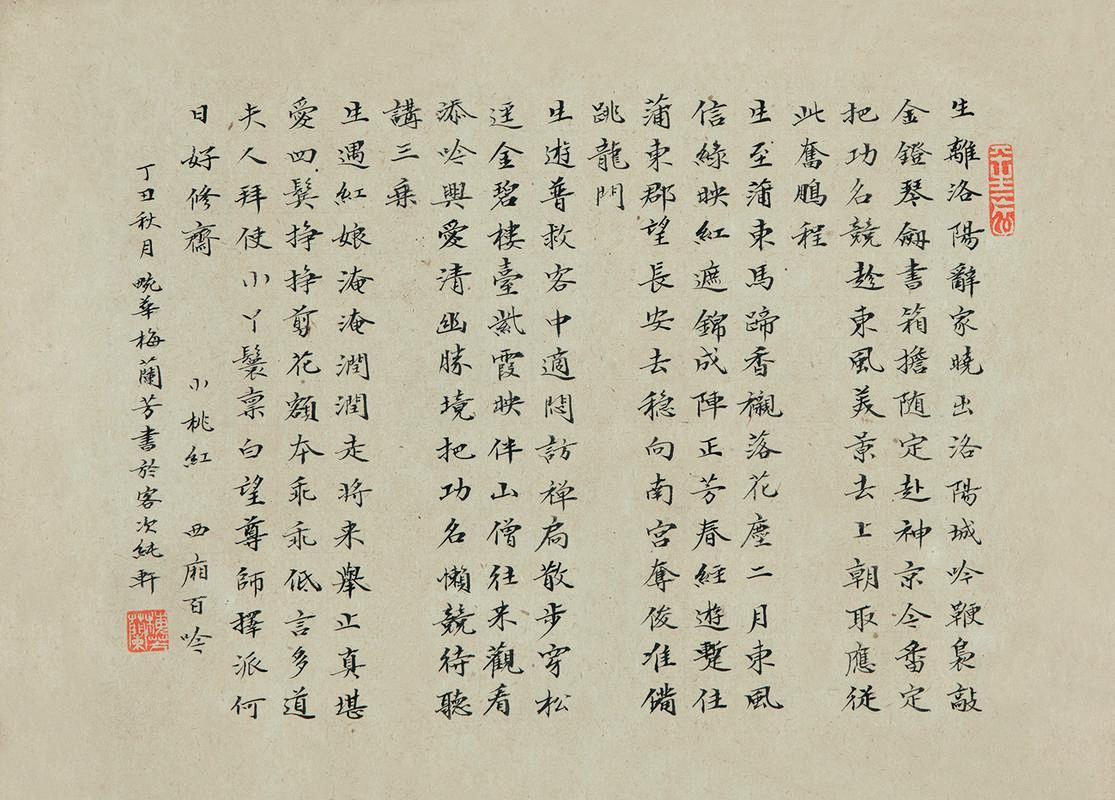 生離洛陽辭家曉出洛陽城吟鞭裊敲
金鐙琴劒書箱擔随定赴神京今番定
把功名競趁東風美景去上朝取應從
此奮鵬程
生至蒲東馬蹄香襯落花塵二月東風
信綠映紅遮錦成陣正芳春經遊蹔住
蒲東郡望長安去穏向南宮奪俊准備
跳龍門
生遊普救客中適悶訪禅扃散步穿松
逕金碧樓臺紫霞映伴山僧往来觀看
添吟興愛清幽勝境把功名懶競待聽
講三乗
生遇紅娘淹淹潤潤走将来舉止真堪
愛四鬓挣挣剪花額本乖乖低言多道
夫人拜使小丫鬟禀白望尊師擇派何
日好修齋 小桃紅 西廂百吟
丁丑秋月畹華梅蘭芳書於客次純軒